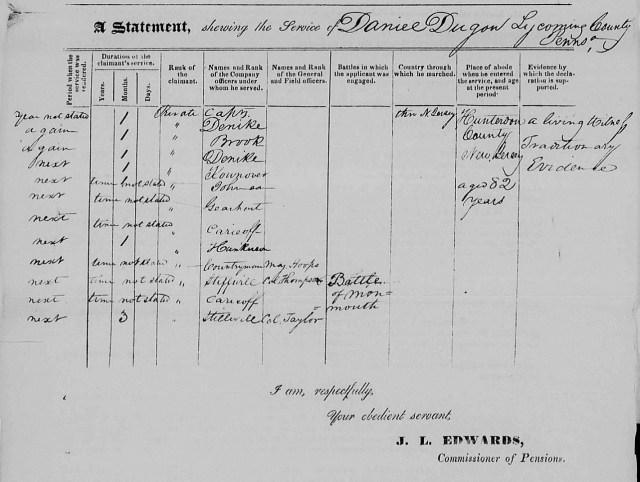 A Statement, shewing the Service of Daniel Dugon Lycoming County
Penns.a
Period when the service was rendered.
Duration of the claimant's service.
Years. Months. Days.
Rank of the claimant.
Names and Rank of the Company officers under whom he served.
Names and Rank of the General and Field officers.
Battles in which the applicant was engaged.
Country through which he marched.
Place of abode when he entered the service, and age at the present period.
Evidence by which the declaration is supported.
Year not stated 1 Private Capt. thro N Jersey Hunterdon a living Witness
again 1 " Denike County Traditionary
again 1 " Brook New Jersey Evidence
next 1 " Denike aged 82
next time not stated " years
next time not stated " Gearhart
next time not stated " Carieoff
next 1 "
next time not stated " Countryman Maj Hoops
next time not stated " Col. Thompson Battle
next time not stated " Carieoff of Mon-
next 3 " Stillwell Col. Taylor mouth
I am, respectfully,
Your obedient servant,
J. L. EDWARDS,
Commissioner of Pensions.